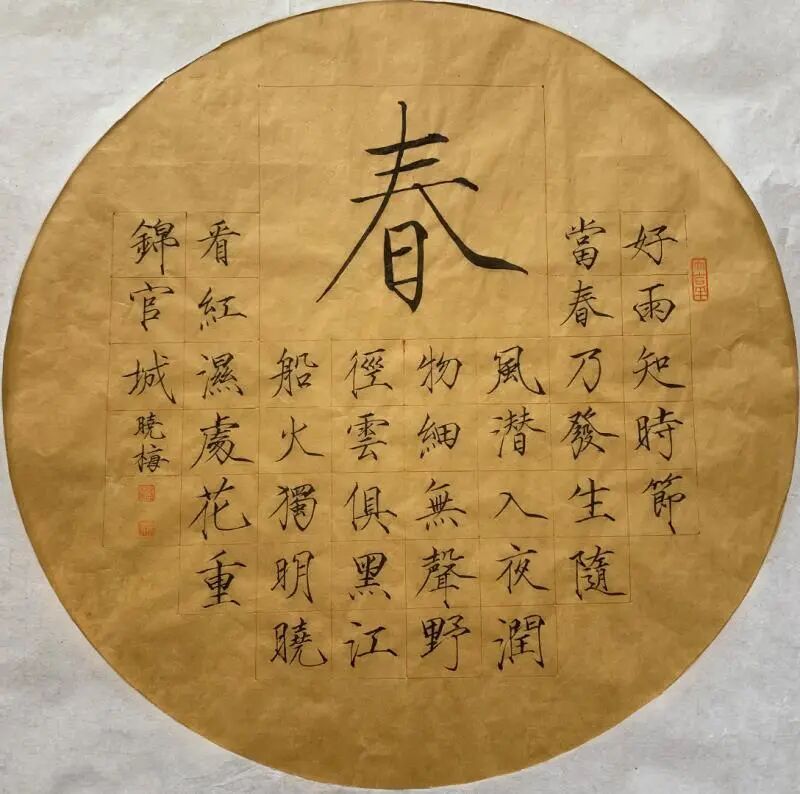 春
好雨知時節
當春乃發生隨
風潜入夜潤
物細無聲野
徑雲俱黑江
船火獨明曉
看紅濕處花重
錦官城
曉梅